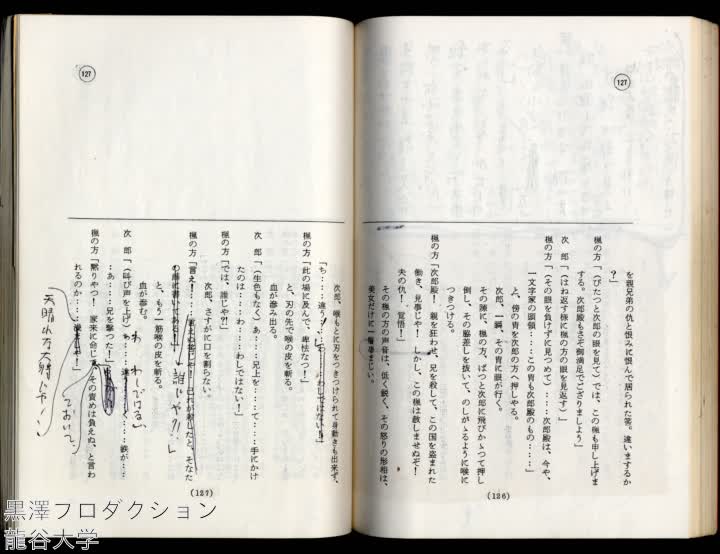 127
を親兄弟の仇と恨みに恨んで居られた筈。違いまするか
?」
楓の方「(ぴたっと次郎の眼を見て)では、この楓も申し上げま
する。次郎殿もさぞ御満足でござりましよう」
次郎「(はね返す様に楓の方の眼を見返す)」
楓の方「(その眼を負けずに見つめて)‥‥次郎殿は、今や、
一文字家の頭領‥‥この冑も次郎殿のもの‥‥」
と、傍の冑を次郎の方へ押しやる。
次郎、一瞬、その冑に眼が行く。
その隙に、楓の方、ぱっと次郎に飛びかゝって押し
倒し、その脇差しを抜いて、のしかゝるように喉に
つきつける。
楓の方「次郎殿!親を狂わせ、兄を殺して、この国を盗まれた
働き、見事じゃ!しかし、この楓は赦しませぬぞ!
夫の仇!覚悟!」
その楓の方の声音は、低く鋭く、その怒りの形相は、
美女だけに一層凄まじい。
(126)
127
次郎、喉もとに刃をつきつけられて身動きも出来ず、
「ち‥‥違う!‥‥わしではない!」
楓の方「此の場に及んで、卑怯なっ!」
と、刃の先で喉の皮を斬る。
血が滲み出る。
次郎「(生色もなく)あ‥‥兄上を‥‥て‥‥手にかけ
たのは‥‥わ‥‥わしではない!」
楓の方「では、誰じゃ?!」
次郎、さすがに口を割らない。
楓の方「言え!‥‥言えぬ筈じゃ!己れが殺したと、そなた
の顔に書いてある!」
誰じゃ?!」
と、もう一筋喉の皮を斬る。
血が滲む。
次郎「(叫び声を上げ)ち‥‥違‥‥鉄が‥‥
わ わしではない
‥‥あ‥‥兄を撃つた!」
楓の方「黙りやつ!家来に命じ、その責めは負えぬ、と言わ
れるのか‥‥浅ましや!」
(127)
黒澤プロダクション
龍谷大学